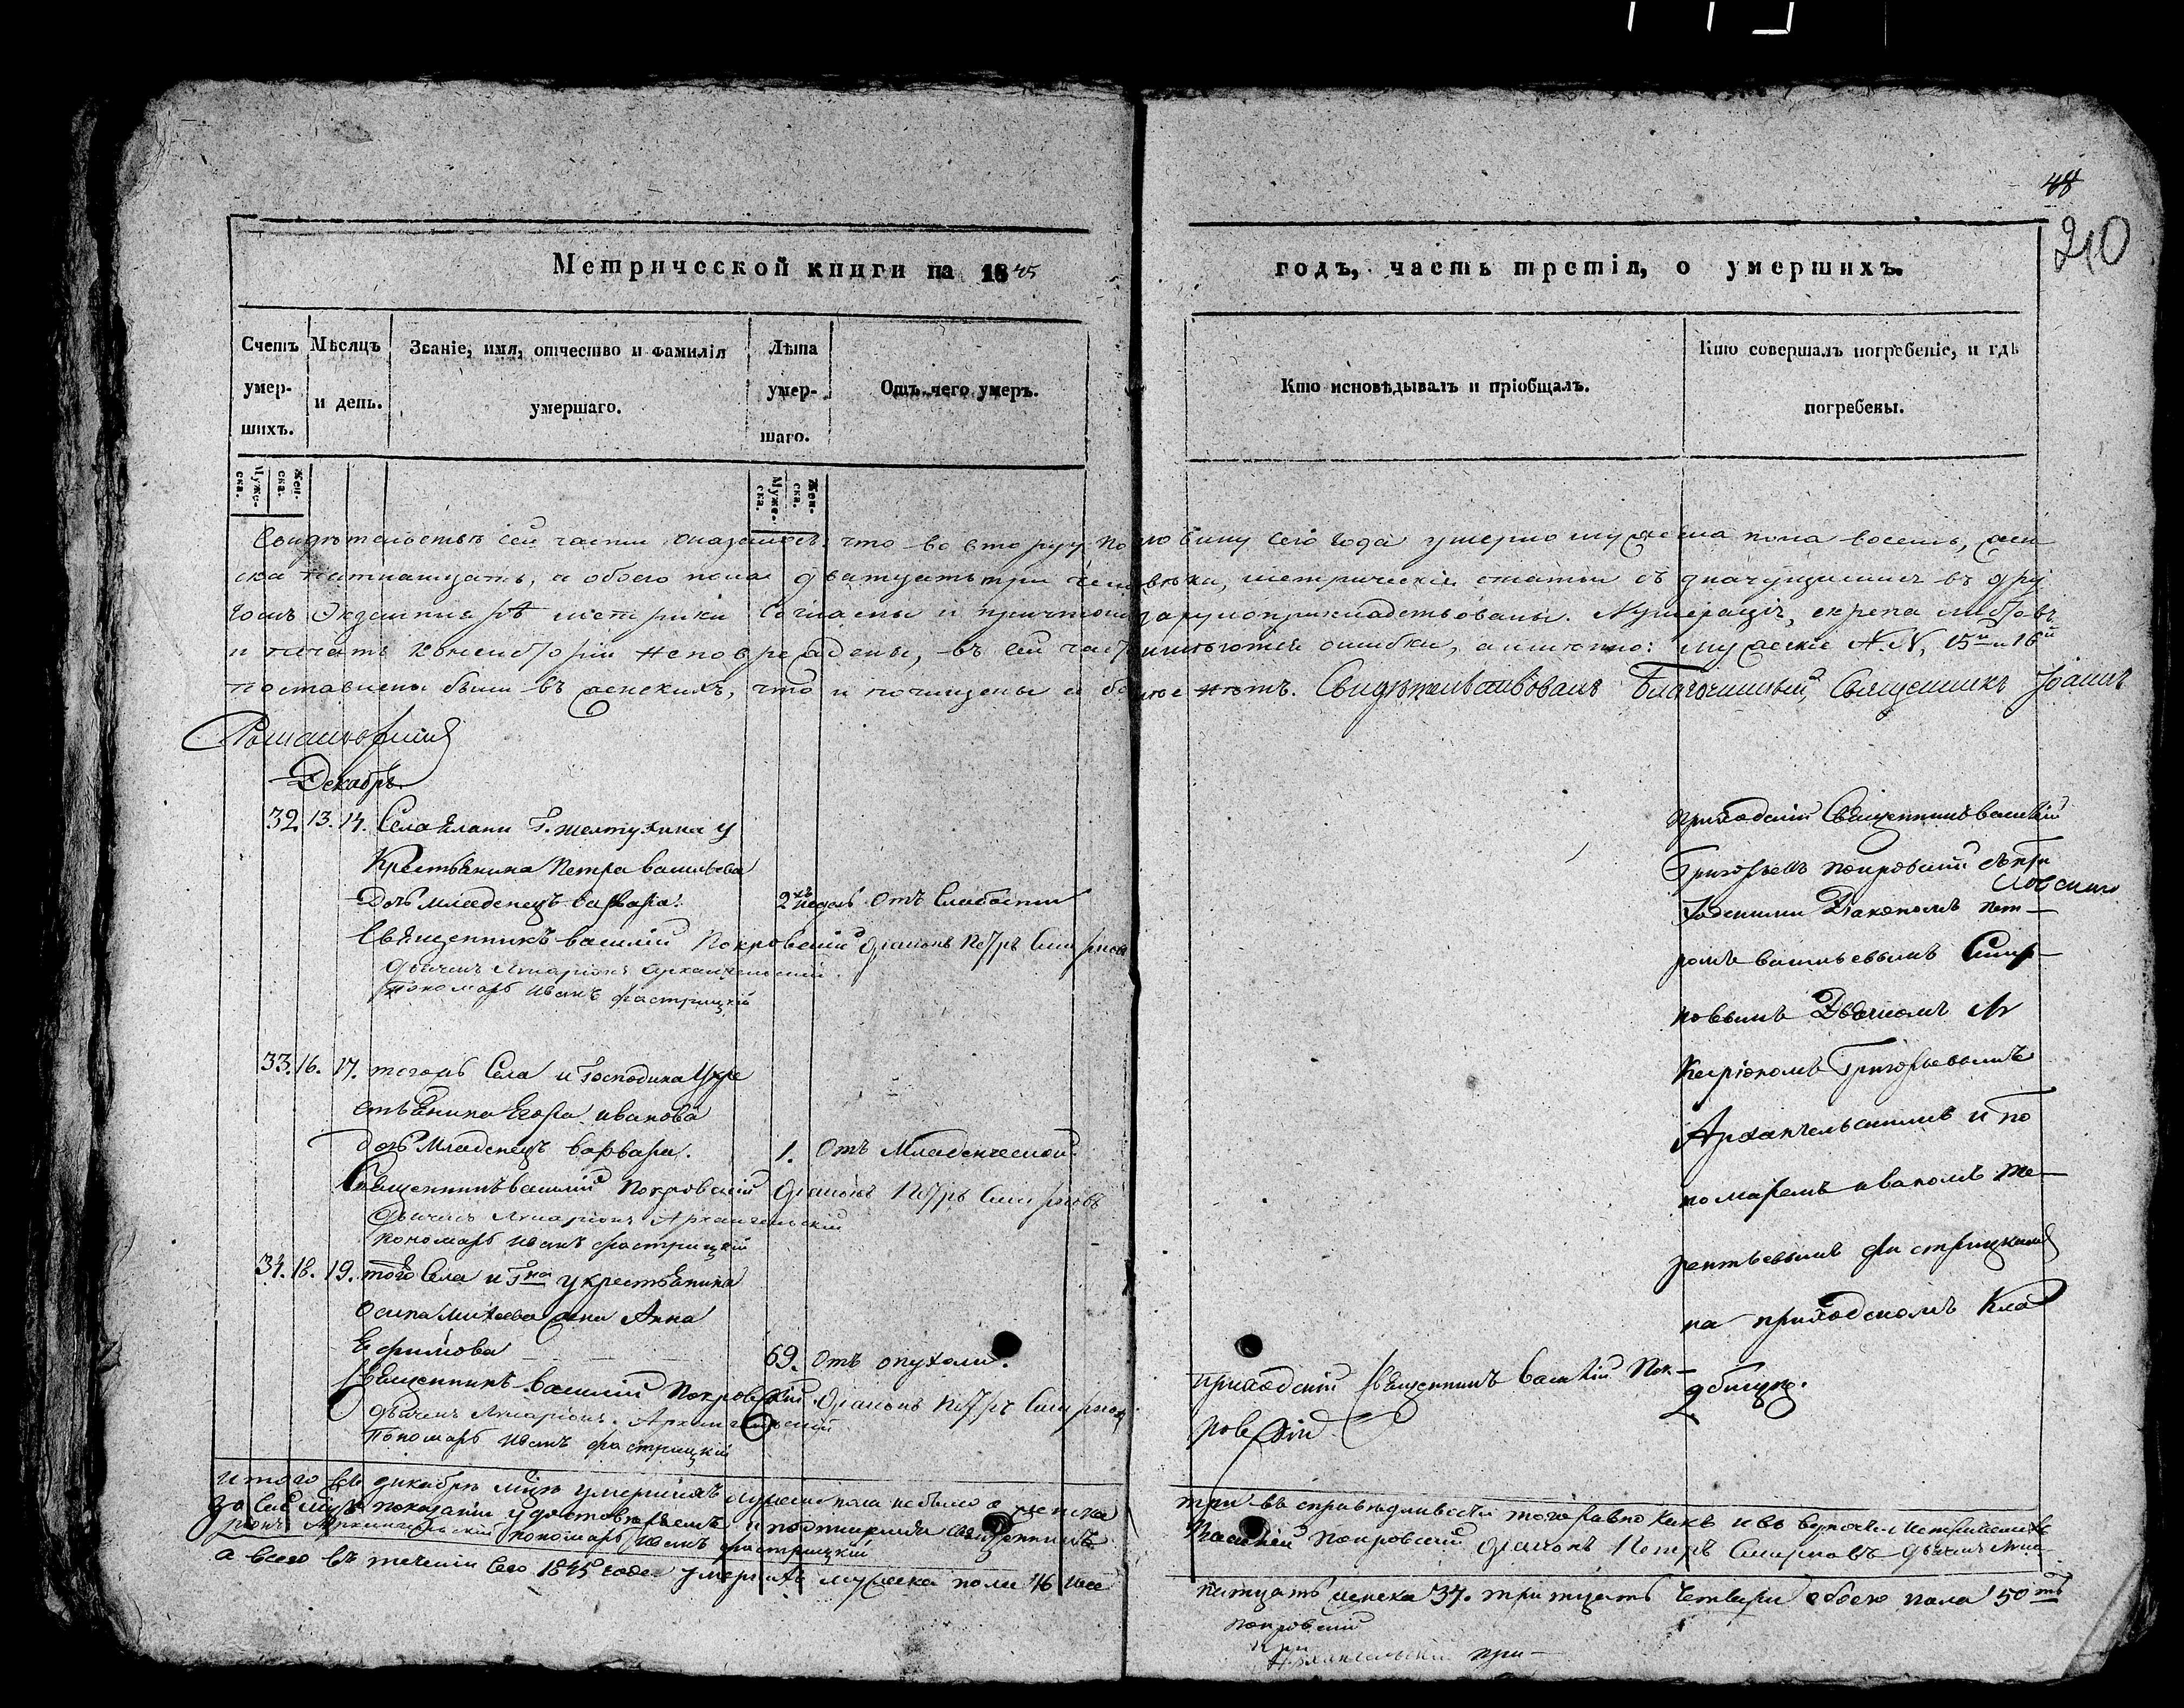 48
210
Метрической книги на 1845
годъ, часть третія, о умершихъ.
Счетъ умер-шихъ.
Мѣсяцъ и день.
Званіе, имя, отчество и фамилія умершаго.
Лѣта умер-шаго.
Отъ чего умеръ.
Кто исповѣдывалъ и пріобщалъ.
Кто совершалъ погребеніе, и гдѣ погребены.
Муже-ска.
Жен-ска.
Муже-ска.
Жен-ска.
что во втору по ловину сего года умерло мужеска пола восемь, жен
ска пятнатцать, а обоего пола дватцать три человѣка, метрическія статьи съ значущимися въ дру
гомъ экземплярѣ метрики согласны и причтомъ зарукоприкладствованы. Нумерація, скрепа листовъ
и печать Консисторіи неповреждены, въ сей части имѣются ошибки, а именно: мужескіе N. N. 15й и 16й
поставлены были въ женскихъ, что и почищены а более нѣтъ. Свидѣтельствовалъ Благочинный, Священникъ Іоаннъ
Декабрь
32. 13. 14. Села Елани Г. Желтухина у
Крестьянина Петра Васильева
дочь младенецъ Варвара. 2хъ недель отъ Слабости
Священникъ Василій Покровскій Діаконъ Петръ Смирновъ
Дьячекъ Иларіонъ Архангельскій
Пономарь Иванъ
33. 16. 17. тогожъ Села и Господина у кре
стьянина Егора Иванова
дочь младенецъ Варвара. 1. отъ Младенческой.
Священникъ Василій Покровскій Діаконъ Петръ Смирновъ
Дьячекъ Иларіонъ Архангельскій
Пономарь Иванъ
34. 18. 19. того Села и Гна у крестьянина
Осипа Михеева жена Анна
Ефимова 69. отъ опухоли.
Священникъ Василій Покровскій Діаконъ Петръ Смирновъ
Дьячекъ Иларіонъ Архангельскій
Пономарь Иванъ
приходскій Священникъ Василій Пок-
ровскій
приходскій Священникъ Василій
Григорьевъ Покровскій
Діакономъ Пет-
ромъ Васильевымъ Смир-
новымъ Дьячкомъ
Григорьевымъ
Архангельскимъ и по
номаремъ Иваномъ Те-
рентьевымъ
на приходскомъ Кла
дбище.
итого въ декабрѣ умершихъ мужеска пола небыло а женска
три въ справедливости того равно какъ и въ
Василій Покровскій Діаконъ Петръ Смирновъ Дьячекъ Ила
ріонъ Архангельскій Пономарь Иванъ
а всего въ теченіи сего 1845 года умершихъ мужеска пола 16 шес
натцать женска 34. тритцать четыри обоего пола 50тъ
Покровскій
Архангельскій при-